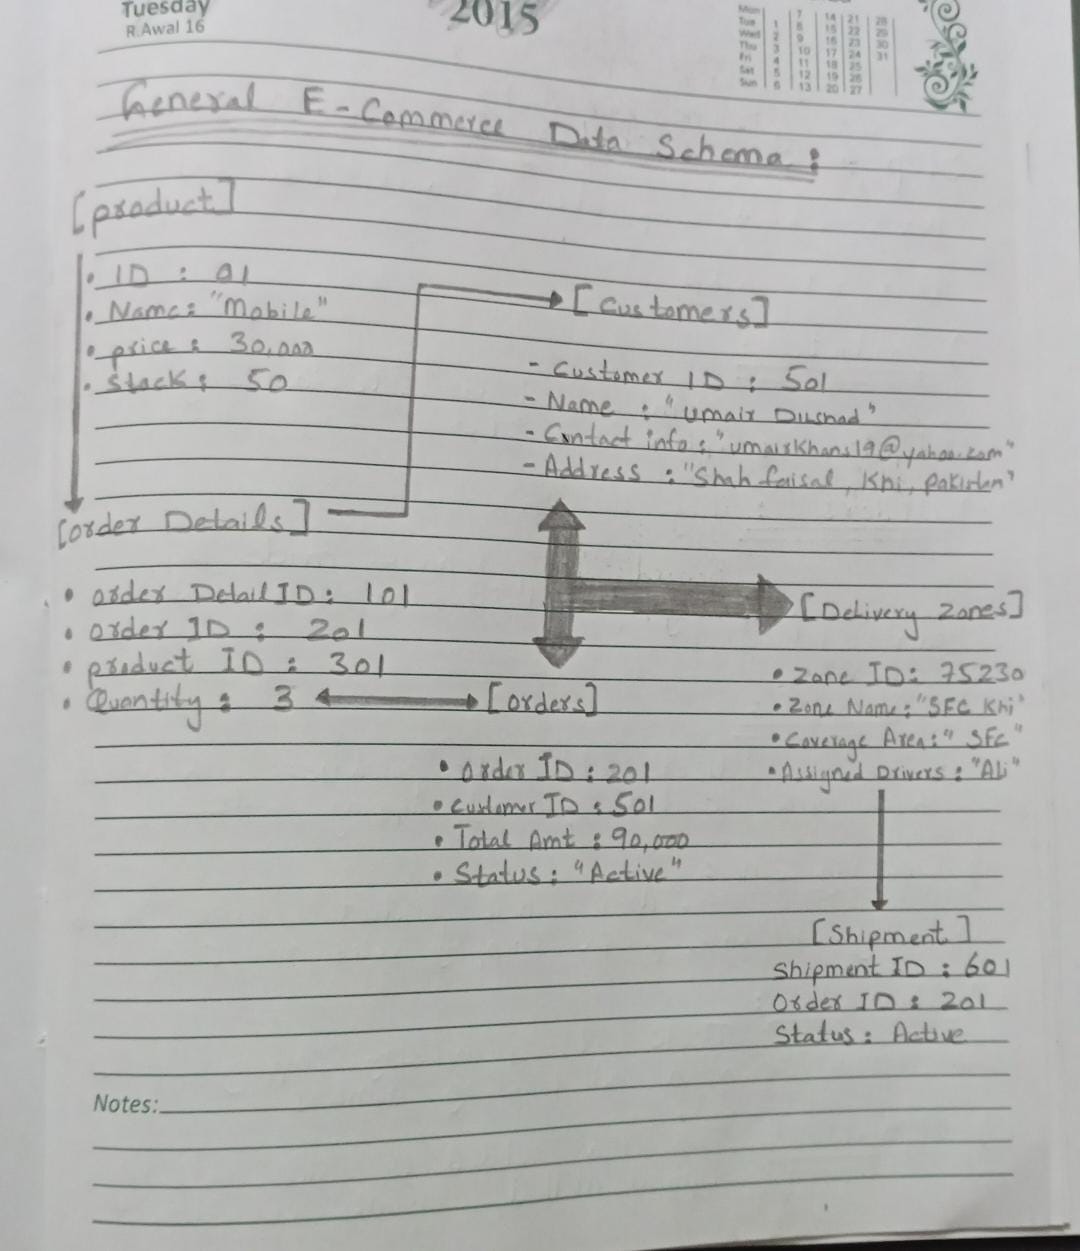 Tuesday
R.Awal 16
2015
Mon 7 14 21 28
Tue 1 8 15 22 29
Wed 2 9 16 23 30
Thu 3 10 17 24 31
Fri 4 11 18 25
Sat 5 12 19 26
Sun 6 13 20 27
General E-Commerce Data Schema :
[product]
• ID : 01
• Name: "Mobile"
• price : 30,000
• Stock : 50
[Customers]
- Customer ID : 501
- Name : "Umair Dilshad"
- Contact info : "umairkhans19@yahoo.com"
- Address : "Shah faisal, Khi, pakistan"
[order Details]
• order Detail ID : 101
• order ID : 201
• product ID : 301
• Quantity : 3
[orders]
• Order ID : 201
• Customer ID : 501
• Total Amt : 90,000
• Status : "Active"
[Delivery Zones]
• Zone ID: 75230
• Zone Name: "SFC Khi"
• Coverage Area: "SFC"
• Assigned Drivers : "Ali"
[Shipment]
Shipment ID : 601
Order ID : 201
Status : Active
Notes: